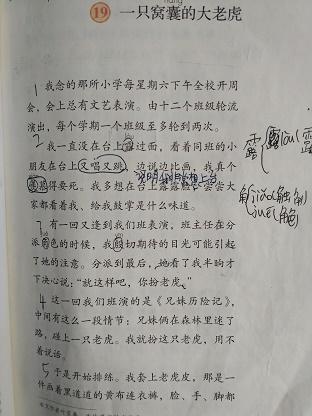 náng
19 一只窝囊的大老虎
1 我念的那所小学每星期六下午全校开周
会,会上总有文艺表演。由十二个班级轮流
演出,每个学期一个班级至多轮到两次。
2 我一直没在台上露过面,看着同班的小
朋友在台上又唱又跳,边说边比画,我真个
羡慕得要死。我多想在台上露露脸,尝尝大
家都看着我、给我鼓掌是什么味道。
3 有一回又逢到我们班表演,班主任在分
派角色的时候,我殷切期待的目光可能引起
了她的注意。分派到最后,她看了我半晌才
下决心说:“就这样吧,你扮老虎。”
4 这一回我们班演的是《兄妹历险记》,
中间有这么一段情节:兄妹俩在森林里迷了
路,碰上一只老虎。我就扮这只老虎,用不
着说话。
5 于是开始排练。我套上老虎皮,那是一
件画着黑道道的黄布连衣裤,脸、手、脚都
露